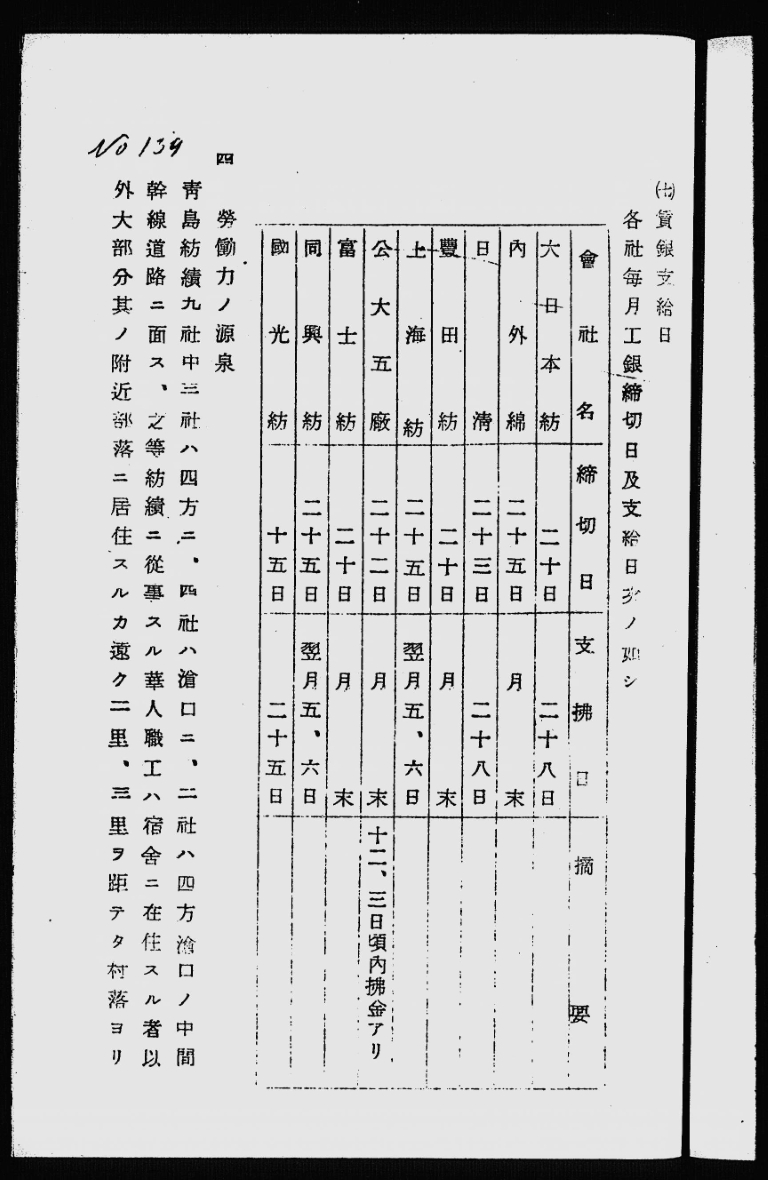 ㈦賃銀支給日
各社每月工銀締切日及支給日次ノ如シ
會社名 締切日 支拂日 摘要
大日本紡 二十日 二十八日
內外綿 二十五日 月末
日淸 二十三日 二十八日
豐田紡 二十日 月末
上海紡 二十五日 翌月五、六日
公大五廠 二十二日 月末 十二、三日頃內拂金アリ
富士紡 二十日 月末
同興紡 二十五日 翌月五、六日
國光紡 十五日 二十五日
四 勞働力ノ源泉
靑島紡績九社中三社ハ四方ニ、四社ハ滄口ニ、二社ハ四方滄口ノ中間
幹線道路ニ面ス、之等紡績ニ從事スル華人職工ハ宿舍ニ在住スル者以
外大部分其ノ附近部落ニ居住スルカ遠ク二里、三里ヲ距テタ村落ヨリ
No 139